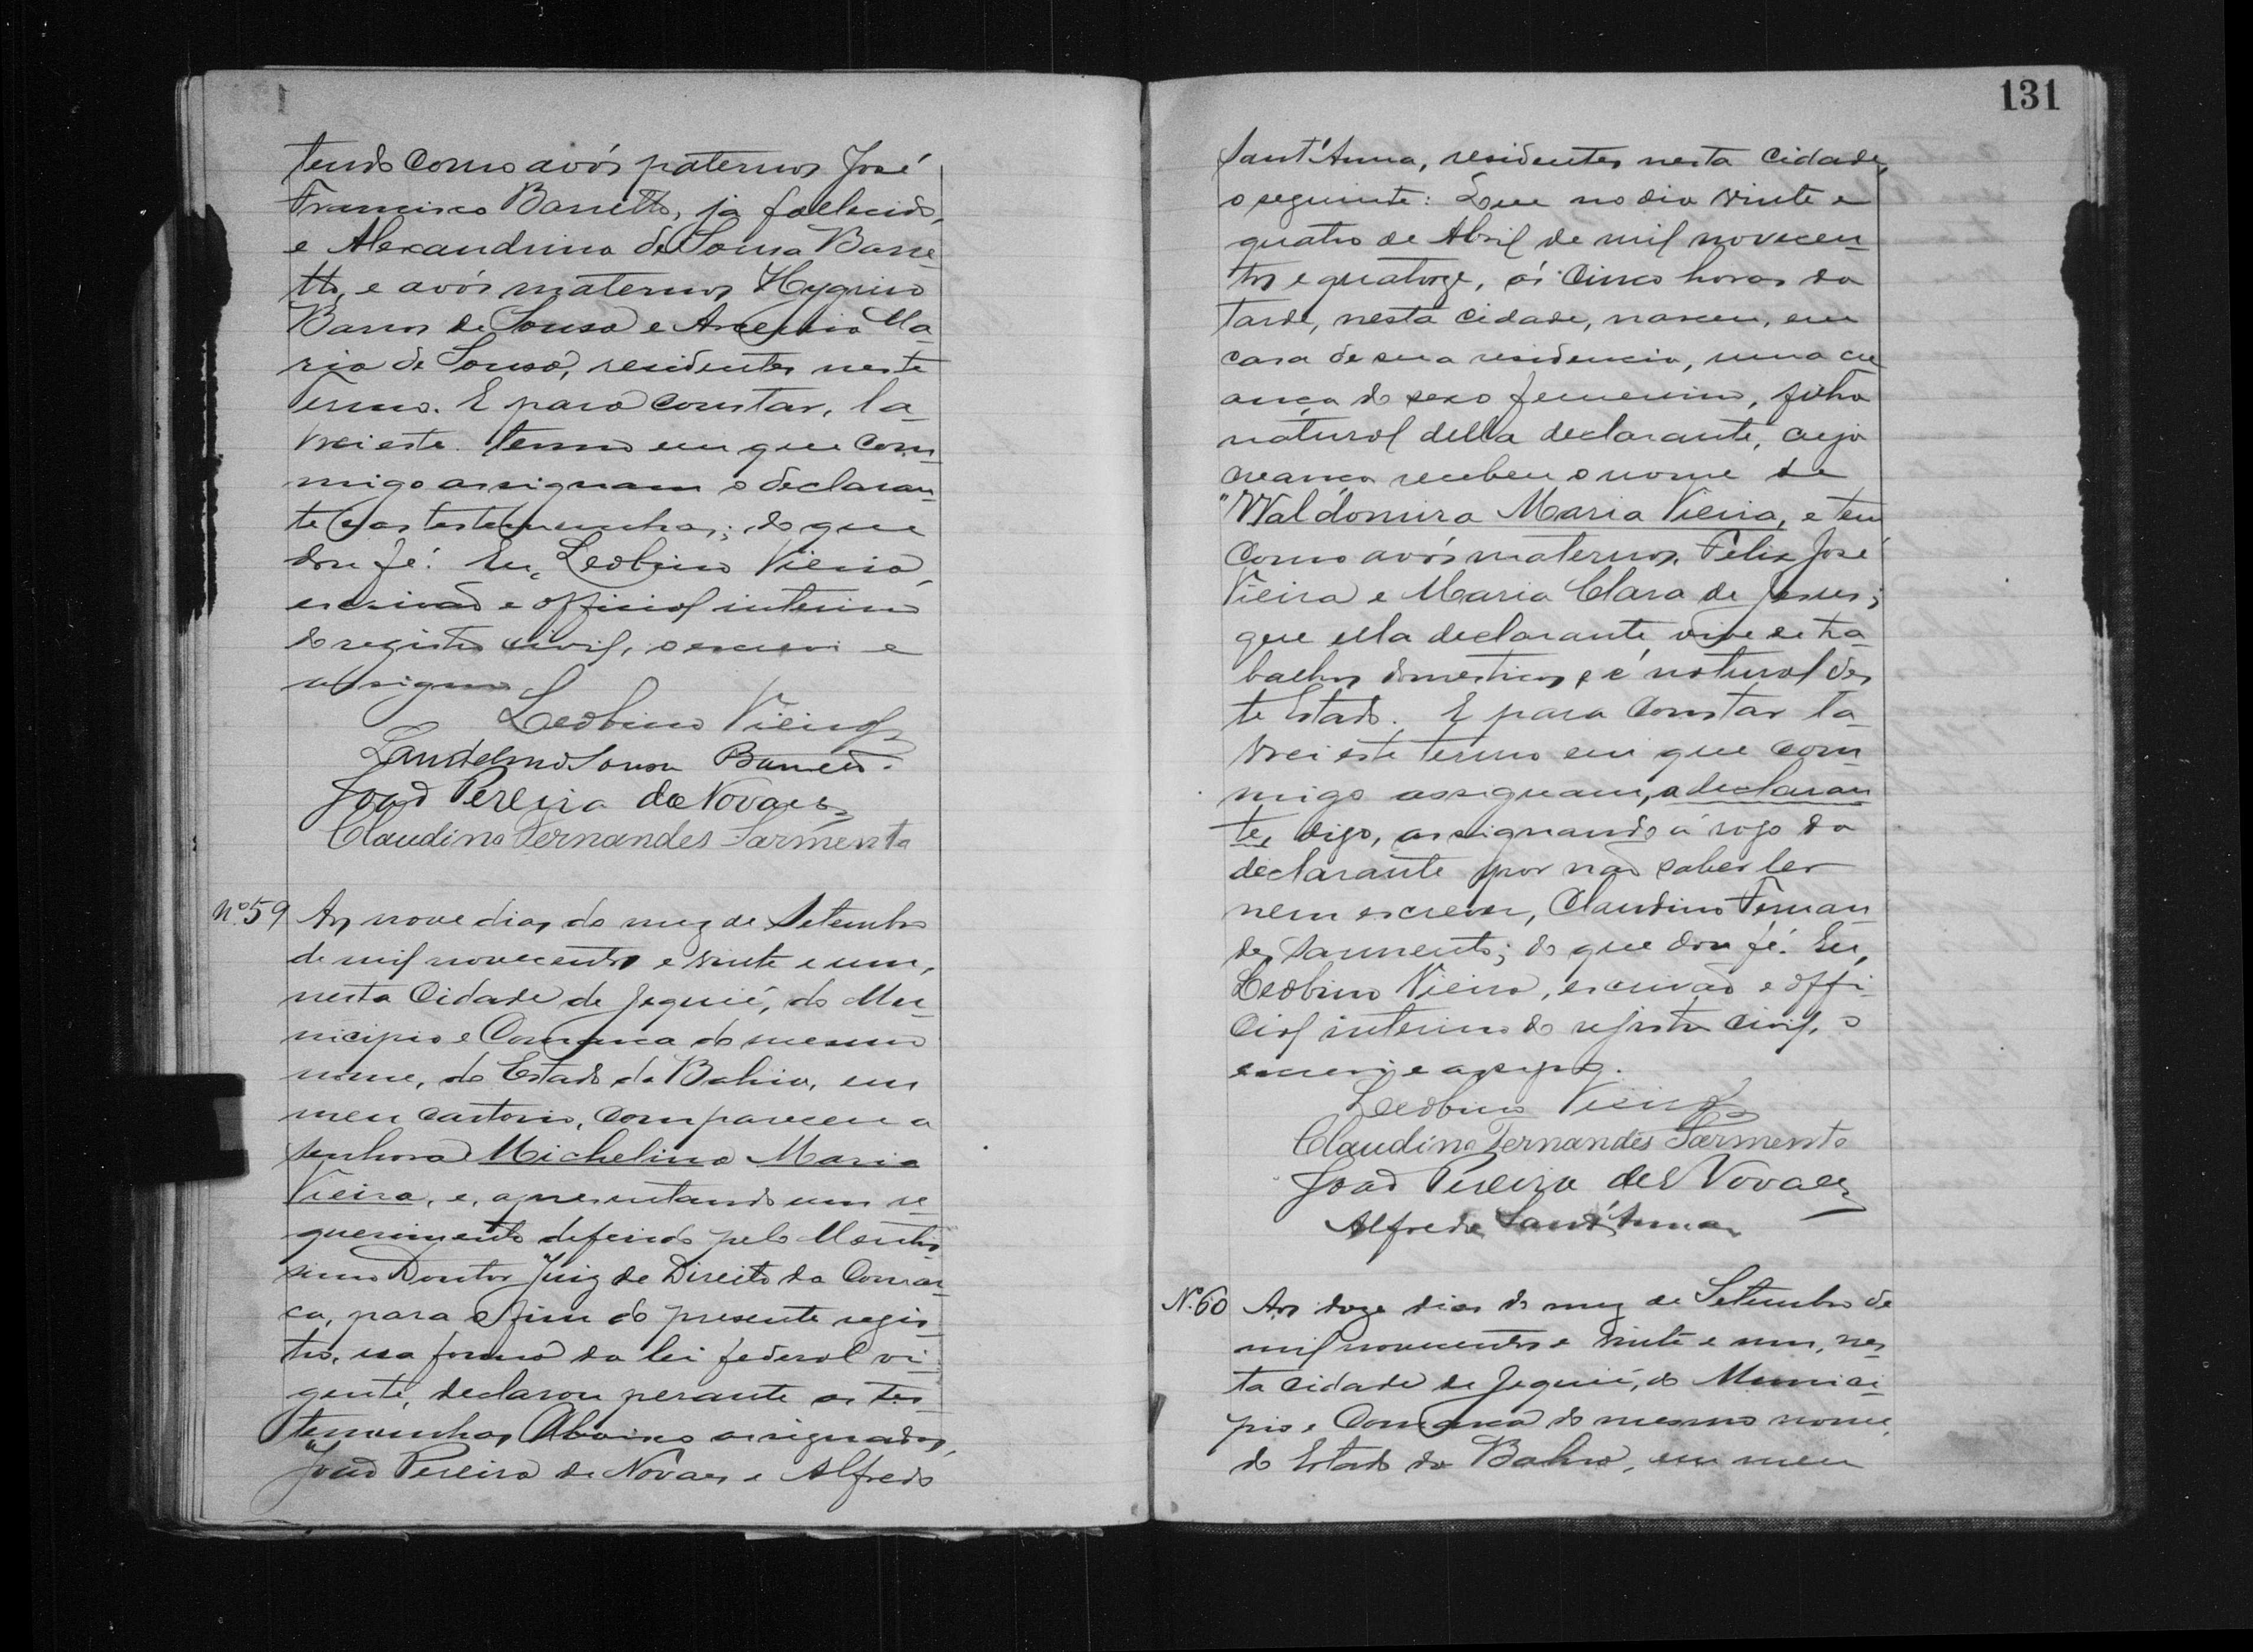 tendo como avós paternos José
Francisco Barretto, já fallecido,
e Alexandrina de Sousa Barre-
tto, e avós maternos Hygino
Barros de Sousa e Ma-
ria de Sousa, residentes neste
Termo. E para constar, la-
vrei este termo em que com-
migo assignam o declaran-
te e as testemunhas; do que
dou fé. Eu, Leobino Vieira,
escrivão e official interino
do registro civil, o escrevi e
assigno.
Leobino Vieira
Landelino Sousa Barretto.
João Pereira de Novaes
Claudino Fernandes Sarmento
Nº 59 Aos nove dias do mez de Setembro
de mil novecentos e vinte e um,
nesta Cidade de Jequié, do Mu-
nicipio e Comarca do mesmo
nome, do Estado da Bahia, em
meu cartorio, compareceu a
senhora Michelina Maria
Vieira, e, apresentando um re-
querimento deferido pelo Meritis-
simo Doutor Juiz de Direito da Comar-
ca, para o fim do presente regis-
tro, na forma da lei federal vi-
gente, declarou perante as tes-
temunhas abaixo assignadas,
João Pereira de Novaes e Alfredo
131
Sant'Anna, residentes nesta cidade,
o seguinte: Que no dia vinte e
quatro de Abril de mil novecen-
tos e quatorze, ás cinco horas da
tarde, nesta cidade, nasceu, em
casa de sua residencia, uma cri
ança do sexo femenino, filha
natural della declarante, cuja
creança recebeu o nome de
"Waldomira Maria Vieira, e tem
como avós maternos, Felix José
Vieira e Maria Clara de Jesus;
que ella declarante vive de tra-
balhos domesticos e é natural des-
te Estado. E para constar la-
vrei este termo em que com-
migo assignam, a declaran-
te, digo, assignando á rogo da
declarante por não saber ler
nem escrever, Claudino Fernan-
des Sarmento; do que dou fé. Eu,
Leobino Vieira, escrivão e offi-
cial interino do registro civil, o
escrevi e assigno.
Leobino Vieira
Claudino Fernandes Sarmento
João Pereira de Novaes
Alfredo Sant'Anna
Nº 60 Aos doze dias do mez de Setembro de
mil novecentos e vinte e um, nes-
ta cidade de Jequié, do Munici-
pio e Comarca do mesmo nome,
do Estado da Bahia, em meu